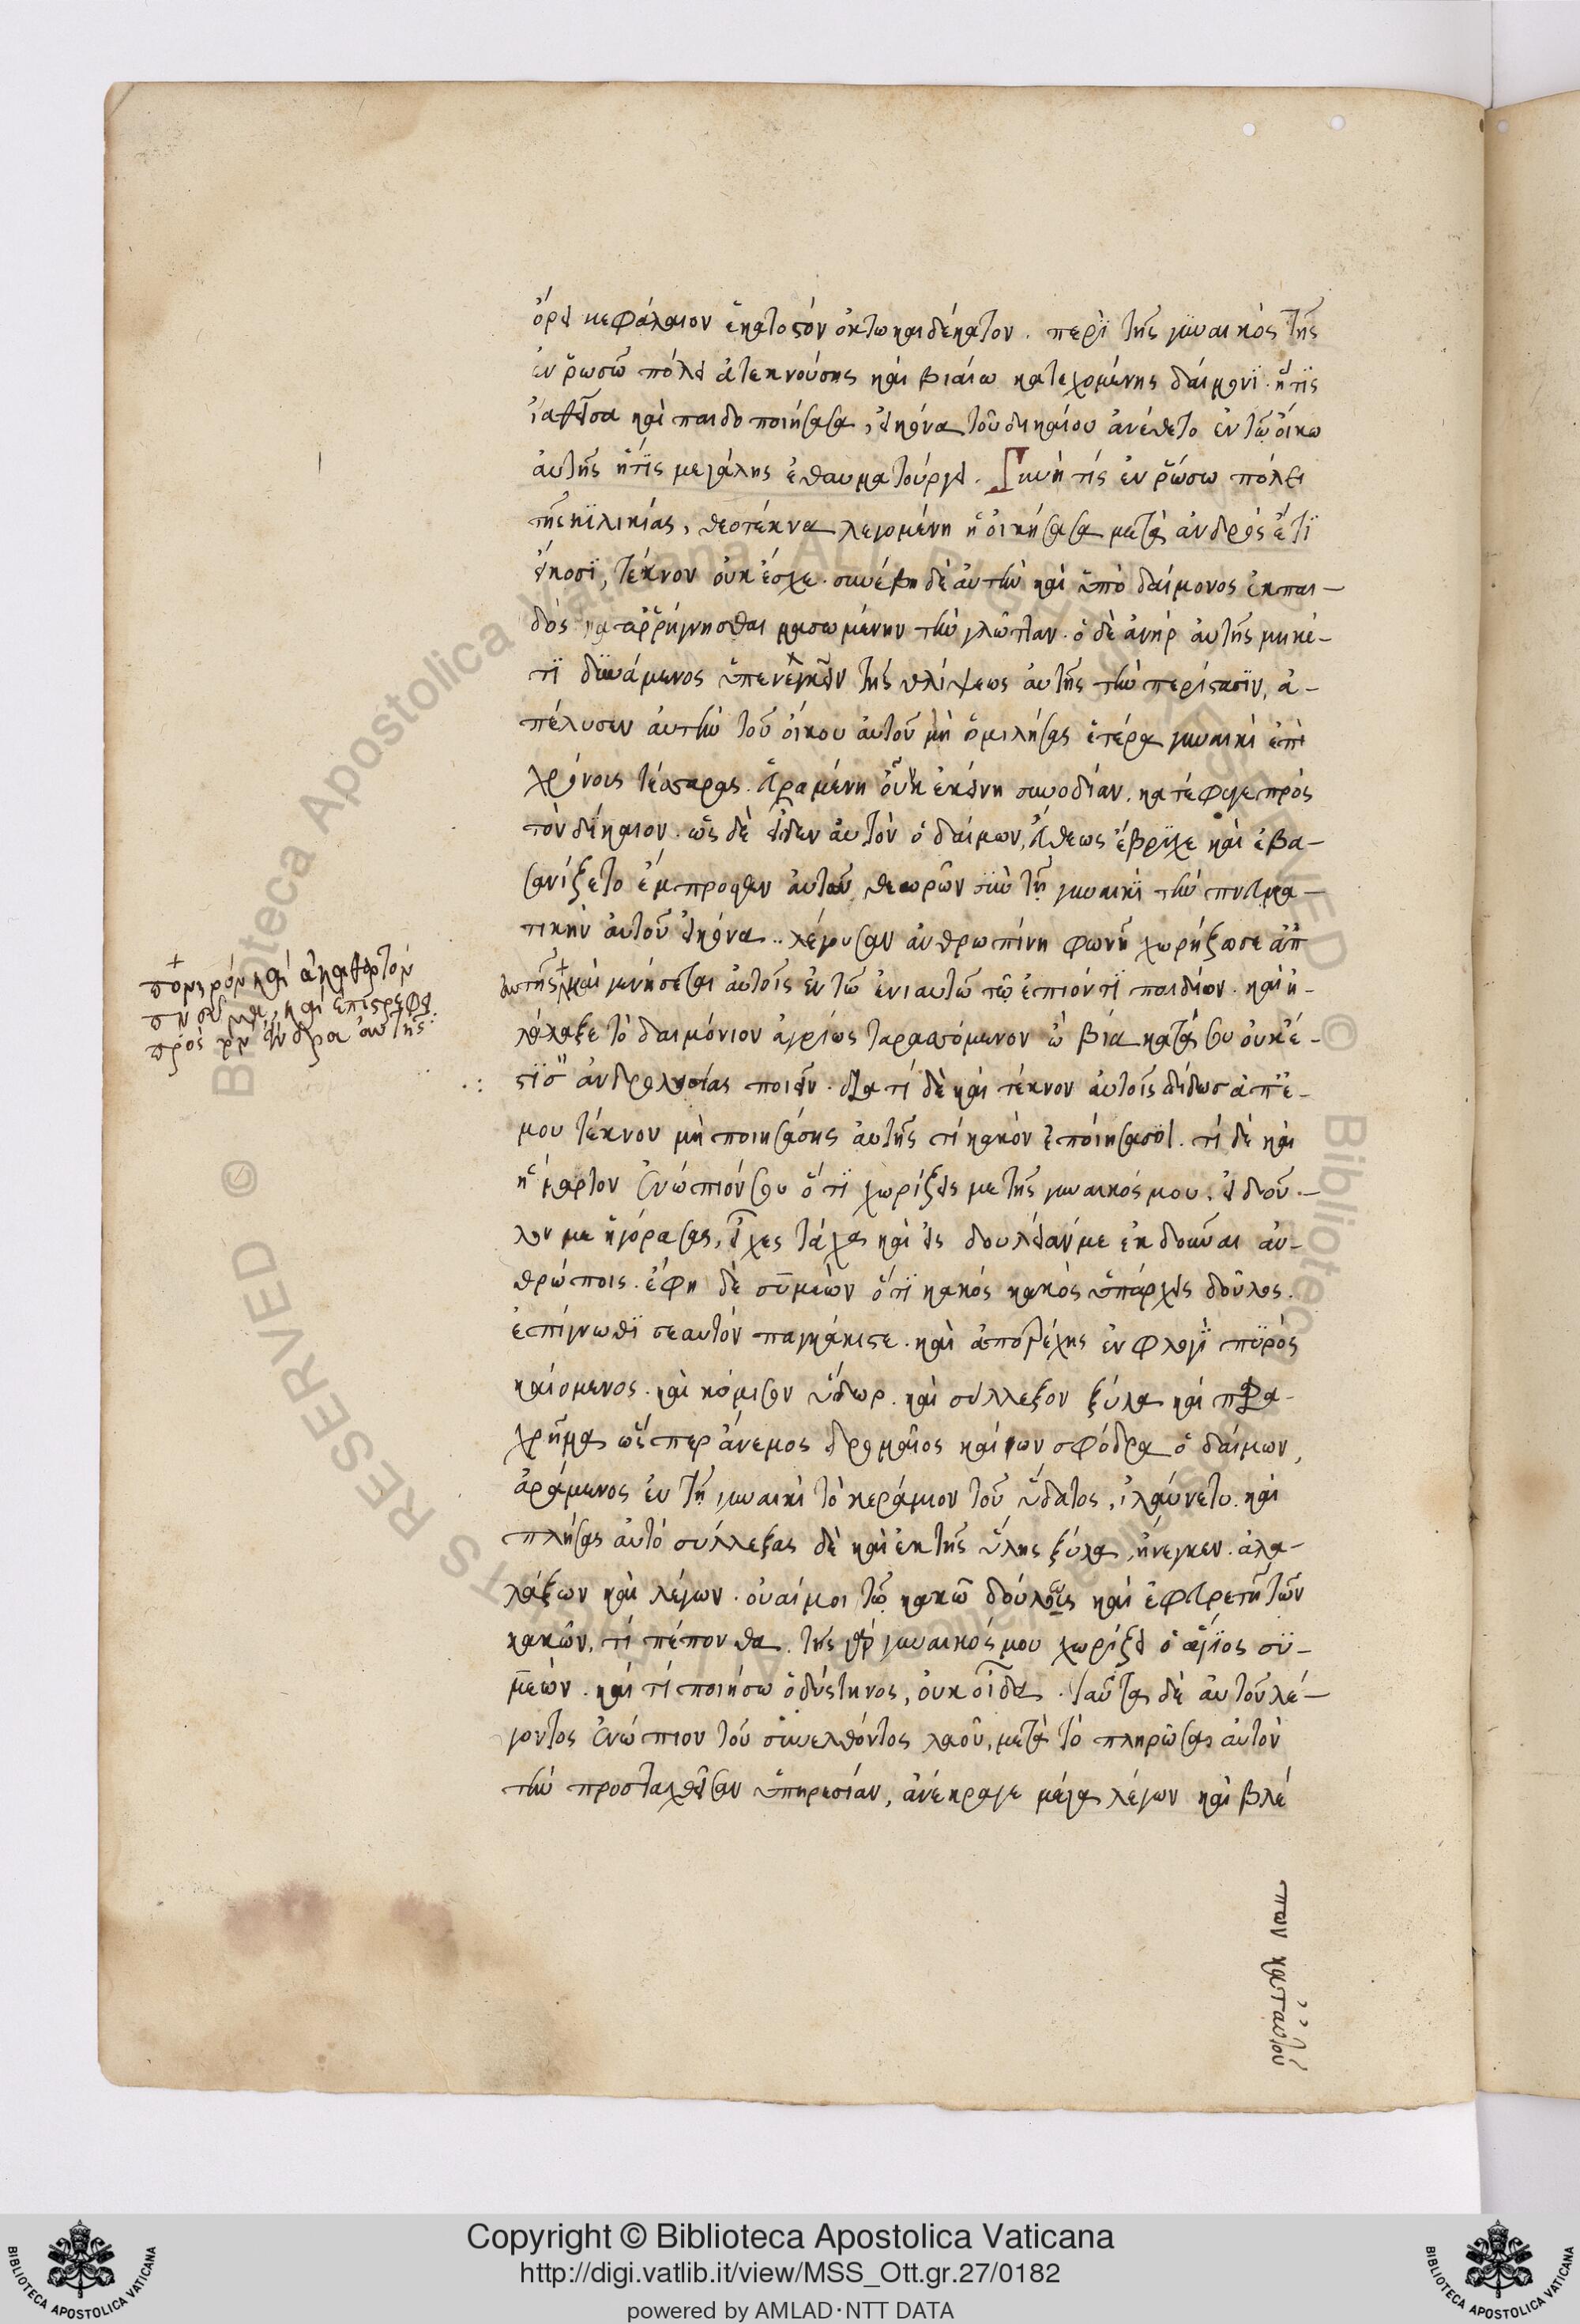 ὄρει κεφάλαιον ἑκατοστὸν ὀκτωκαιδέκατον. περὶ τῆς γυναικὸς τῆς
ἐν ῥωσῶ πόλει ἀτεκνούσης καὶ βιαίω κατεχομένης δαίμονϊ. ἥτϊς
ἰαθεῖσα καὶ παιδοποιήσασα, εἰκόνα τοῦ δικαίου ἀνέθετο ἐν τῶ οἴκω
αὐτῆς ἥτϊς μεγάλης ἐθαυματούργει. Γυνή τίς ἐν ῥώσω πόλει
τῆς κϊλικίας, θεοτέκνα λεγομένη ἡ οἰκήσασα μετὰ ἀνδρὸς ἔτϊ
εἴκοσϊ, τέκνον οὐκ ἔσχε. συνέβη δὲ αὐτὴν καὶ ὑπὸ δαίμονος ἐκ παι-
δὸς καταῤῥήγνησθαι μασωμένην τὴν γλῶτταν. ὁ δὲ ἀνήρ αὐτῆς μηκέ-
τϊ δϋνάμενος ὑπενεγκεῖν τῆς θλίψεως αὐτῆς τὴν περίστασϊν, ἀ-
πέλυσεν αὐτὴν τοῦ οἴκου αὐτοῦ μὴ ὁμιλήσας ἑτέρα γυναικὶ ἐπὶ
χρόνοις τέσσαρας. ἀραμένη οὖν ἐκείνη συνοδίαν. κατέφυγε πρὸς
τὸν δίκαιον. ὡς δὲ εἶδεν αὐτὸν ὁ δαίμων, ἀθέως ἔβρϋχε καὶ ἐβα-
σανίζετο ἔμπροσθεν αὐτοῦ, θεωρῶν σὺν τῆ γυναικὶ τὴν πνευμα-
τικὴν αὐτοῦ εἰκόνα.. λέγουσαν ἀνθρωπίνη φωνῆ χωρήζωσε ἀπ
αυτῆς + καὶ γενήσεται αὐτοῖς ἐν τῶ ἐνιαυτῶ τῶ ἐπιόντϊ παιδίον. καὶ ἠ-
+ πονηρόν καὶ ἀκαθαρτόν
πνεῦμα, καὶ ἐπιστρέφει
πρὸς τὸν ἄνδρα αὐτῆς:
λάλαξε τὸ δαιμόνιον ἀγρίως ταρασσόμενον ὦ βία κατά σου οὐκ ἔ-
στϊ σ ἀνδροληψίας ποιεῖν. διατί δὲ καὶ τέκνον αὐτοῖς δίδωσ ἀπ ἐ-
μου τέκνον μὴ ποιησάσης αὐτῆς τί κακὸν ἐποίησα σοί. τί δὲ καὶ
ἥμαρτον ἐνώπιόν σου ὅτϊ χωρίζεις με τῆς γυναικός μου. εἰ δοῦ-
λον με ἠγόρασας, εἶχες τάχα καὶ εἰς δουλείαν με ἐκδοῦναι ἀν-
θρώποις. ἔφη δὲ συμεὼν ὅτϊ κακὸς κακὸς ὑπάρχεις δοῦλος.
ἐπίγνωθϊ σεαυτόν παγκάκιστε. καὶ ἀπότρεχης ἐν φλογὶ πϋρὸς
καιόμενος. καὶ κόμισον ὕδωρ. καὶ σύλλεξον ξύλα καὶ παρα-
χρῆμα ὥσπερ ἄνεμος δρομαῖος καίων σφόδρα ὁ δαίμων,
ἀράμενος ἐν τῆ γυναικὶ τὸ κεράμιον τοῦ ὕδατος, ἠλαύνετο. καὶ
πλήσας αὐτό συλλέξας δὲ καὶ ἐκ τῆς ὕλης ξύλα, ἤνεγκεν. ἀλα-
λάζων καὶ λέγων. οὐαί μοι τῶ κακῶ δούλοις καὶ ἐφευρετῆ τῶν
κακῶν, τί πέπονθα. τῆς γὰρ γυναικός μου χωρίζει ὁ ἅγϊος σϋ-
μεών. καὶ τί ποιήσω ὁ δύστηνος, οὐκ οἶδα. ταῦτα δὲ αὐτοῦ λέ-
γοντος ἐνώπιον τοῦ συνελθόντος λαοῦ, μετὰ τὸ πληρῶσαι αὐτὸν
τὴν προσταχθεῖσαν ὑπηρεσίαν, ἀνέκραγε μέγα λέγων καὶ βλέ
πων κατ αυτοῦ
Copyright © Biblioteca Apostolica Vaticana
http://digi.vatlib.it/view/MSS_Ott.gr.27/0182
powered by AMLAD·NTT DATA